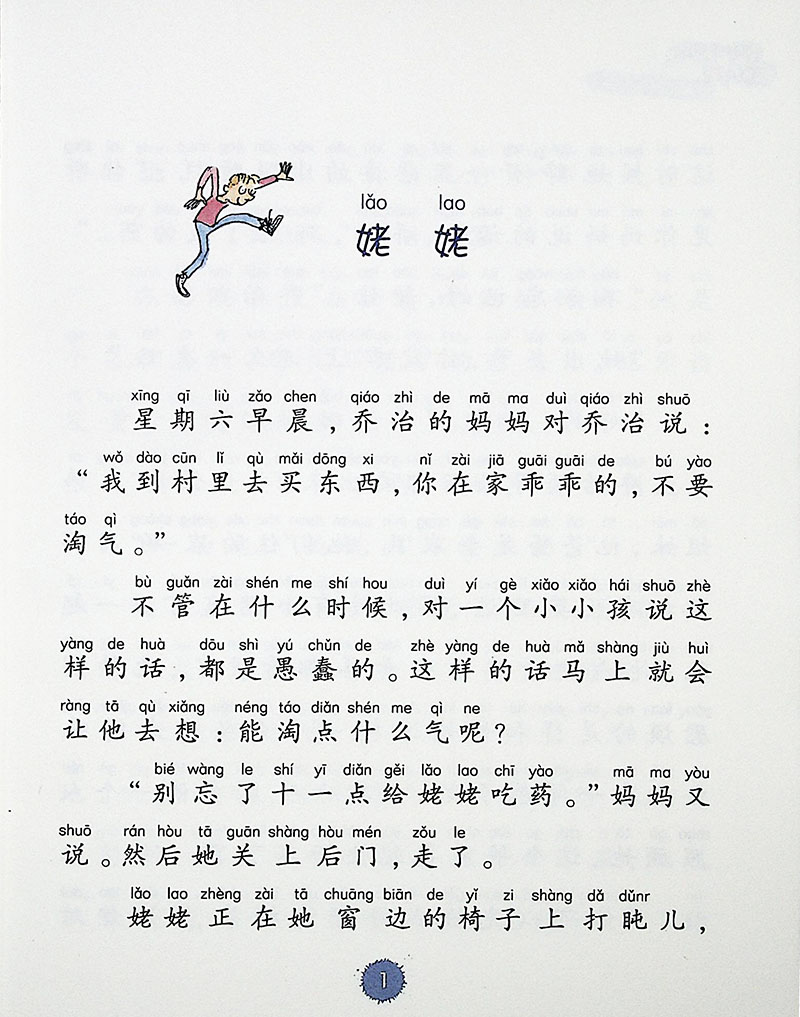 lǎo lao
姥姥
xīng qī liù zǎo chen qiáo zhì de mā ma duì qiáo zhì shuō
星期六早晨，乔治的妈妈对乔治说：
wǒ dào cūn lǐ qù mǎi dōng xi nǐ zài jiā guāi guāi de bú yào
“我到村里去买东西，你在家乖乖的，不要
táo qì
淘气。”
bù guǎn zài shén me shí hou duì yí gè xiǎo xiǎo hái shuō zhè
不管在什么时候，对一个小小孩说这
yàng de huà dōu shì yú chǔn de zhè yàng de huà mǎ shàng jiù huì
样的话，都是愚蠢的。这样的话马上就会
ràng tā qù xiǎng néng táo diǎn shén me qì ne
让他去想：能淘点什么气呢？
bié wàng le shí yī diǎn gěi lǎo lao chī yào mā ma yòu
“别忘了十一点给姥姥吃药。”妈妈又
shuō rán hòu tā guān shàng hòu mén zǒu le
说。然后她关上后门，走了。
lǎo lao zhèng zài tā chuāng biān de yǐ zi shàng dǎ dǔnr
姥姥正在她窗边的椅子上打盹儿，
1